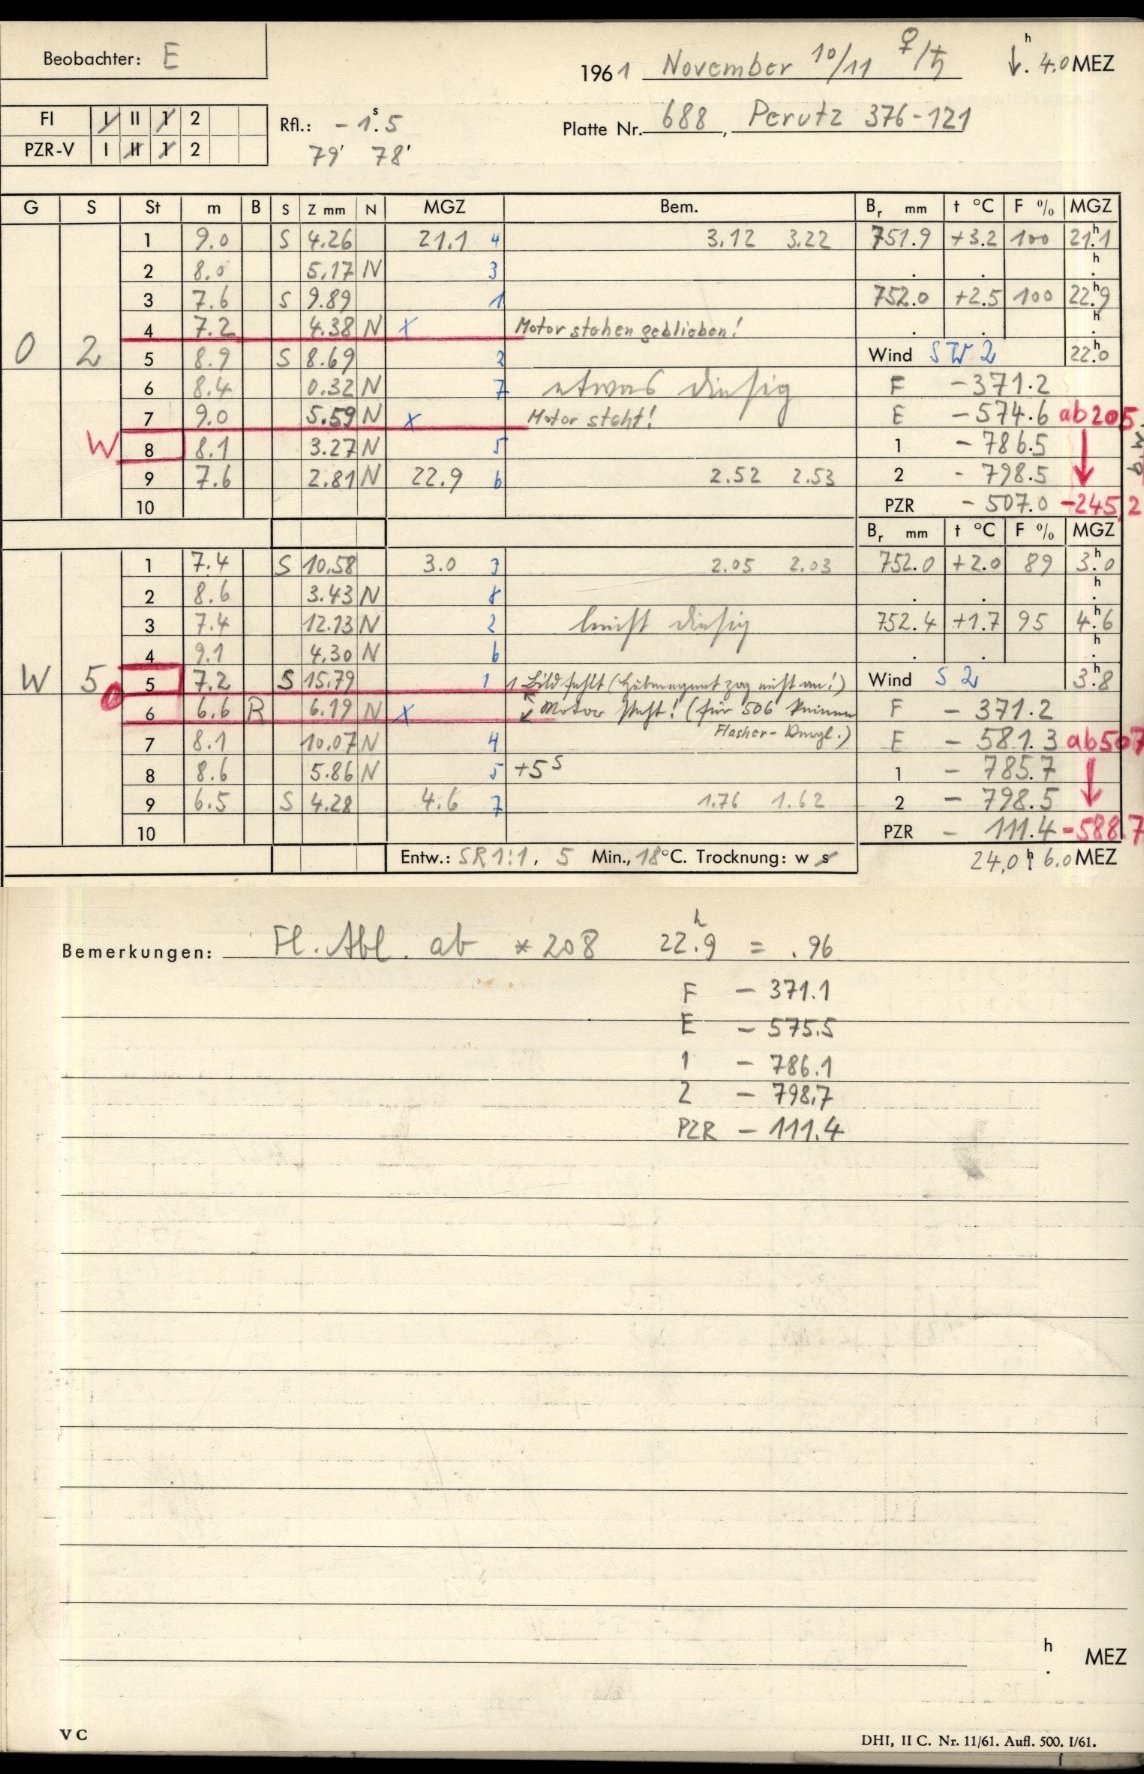 Beobachter: E
1961 November 10/11 ♀/♄ ↓. 4.0 h MEZ
FI I II 1 2
PZR-V I II 1 2
Rfl.: - 1.s5
79' 78'
Platte Nr. 688, Perutz 376-121
G S St m B S Z mm N MGZ Bem. Br mm t °C F % MGZ
O 2
1 9.0 S 4.26 21.1 4 3.12 3.22 751.9 +3.2 100 21.h1
2 8.0 5.17 N 3 . . h.
3 7.6 S 9.89 1 752.0 +2.5 100 22.h9
4 7.2 4.38 N x Motor stehen geblieben! . . h.
5 8.9 S 8.69 2 Wind SW 2 22.h0
6 8.4 0.32 N 7 etwas diesig F -371.2
7 9.0 5.59 N x Motor steht! E -574.6 ab 205
W 8 8.1 3.27 N 5 1 - 786.5
9 7.6 2.81 N 22.9 6 2.52 2.53 2 - 798.5
10 PZR - 507.0 -245,2
Br mm t °C F % MGZ
W 5
1 7.4 S 10.58 3.0 3 2.05 2.03 752.0 +2.0 89 3.h0
2 8.6 3.43 N 8 . . h
3 7.4 12.13 N 2 leicht diesig 752.4 +1.7 95 4.h6
4 9.1 4.30 N 6 . . h.
5 7.2 S 15.79 1 1 Bild fehlt (Hubmagnet zog nicht an!) Wind S 2 3.h8
6 6.6 R 6.19 N x Motor steht! (für 506 keinen F - 371.2
Flasher-
7 8.1 10.07 N 4 E - 581.3 ab 507
8 8.6 5.86 N 5 +5 s 1 - 785.7
9 6.5 S 4.28 4.6 7 1.76 1.62 2 - 798.5
10 PZR - 111.4 -588.7
Entw.: SR 1:1, 5 Min., 18 °C. Trocknung: w s 24,0 h 6.0 MEZ
Bemerkungen: Fl. Abl. ab * 208 22.h9 = .96
F - 371.1
E - 575.5
1 - 786.1
2 - 798,7
PZR - 111.4
h. MEZ
V C
DHI, II C. Nr. 11/61. Aufl. 500. I/61.